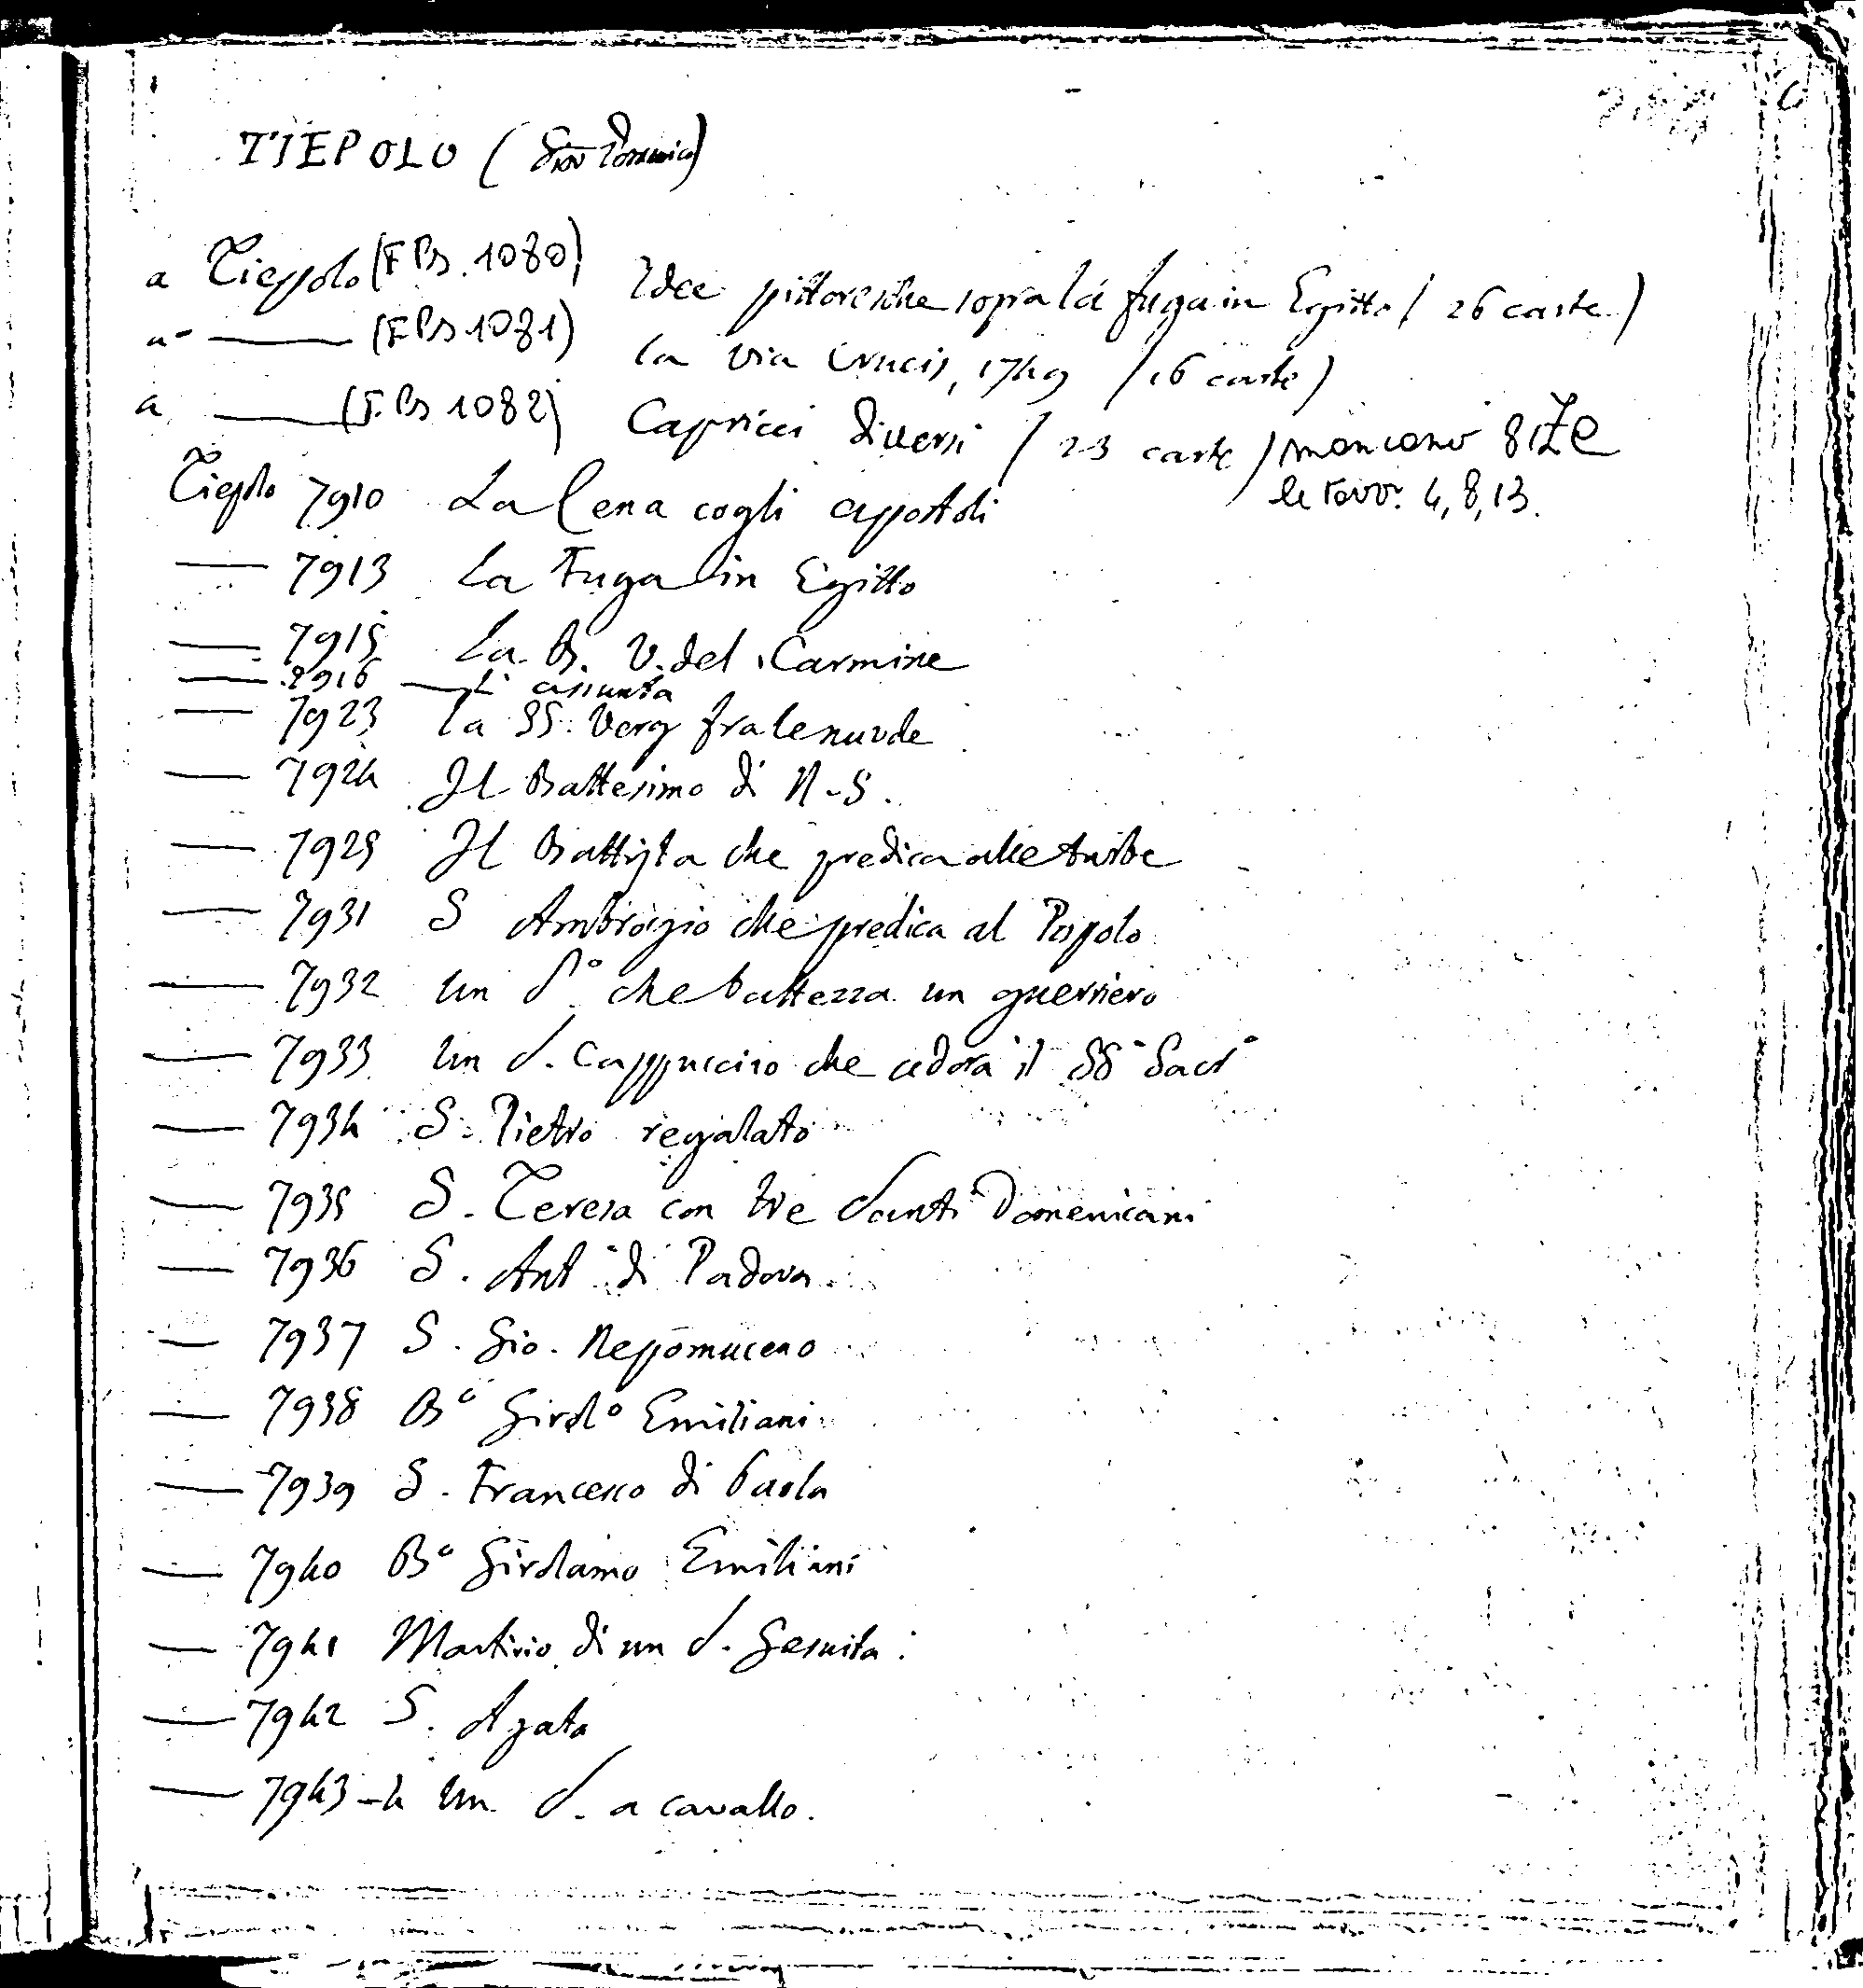 TIEPOLO (Gio Domenico)
a Tiepolo (F Bs. 1080) Idee pittoresche sopra la fuga in Egitto / 26 carte /
a — (F Bs 1081) la via Crucis, 1749 / 16 carte /
a — (F. Bs 1082) Capricci diversi / 23 carte / mancano
le tavv. 4, 8, 13.
Tiepolo 7910 La Cena cogli apostoli
— 7913 La Fuga in Egitto
— 7915 La B. V. del Carmine
— 7916 — L'assunta
— 7923 la SS. Verg fra le nuvole
— 7924 Il Battesimo di N. S.
— 7925 Il Battista che predica alle turbe
— 7931 S Ambrogio che predica al Popolo
— 7932 un S.º che battezza un guerriero
— 7933 Un S. Cappuccino che adora il SSº Sacrº
— 7934 S. Pietro regalato
— 7935 S. Teresa con tre Santi Domenicani
— 7936 S. Antº di Padova
— 7937 S. Gio. Nepomuceno
— 7938 Bº Girolº Emiliani
— 7939 S. Francesco di Paola
— 7940 Bº Girolamo Emiliani
— 7941 Martirio di un S. Gesuita.
— 7942 S. Agata
— 7943-4 Un S. a cavallo.